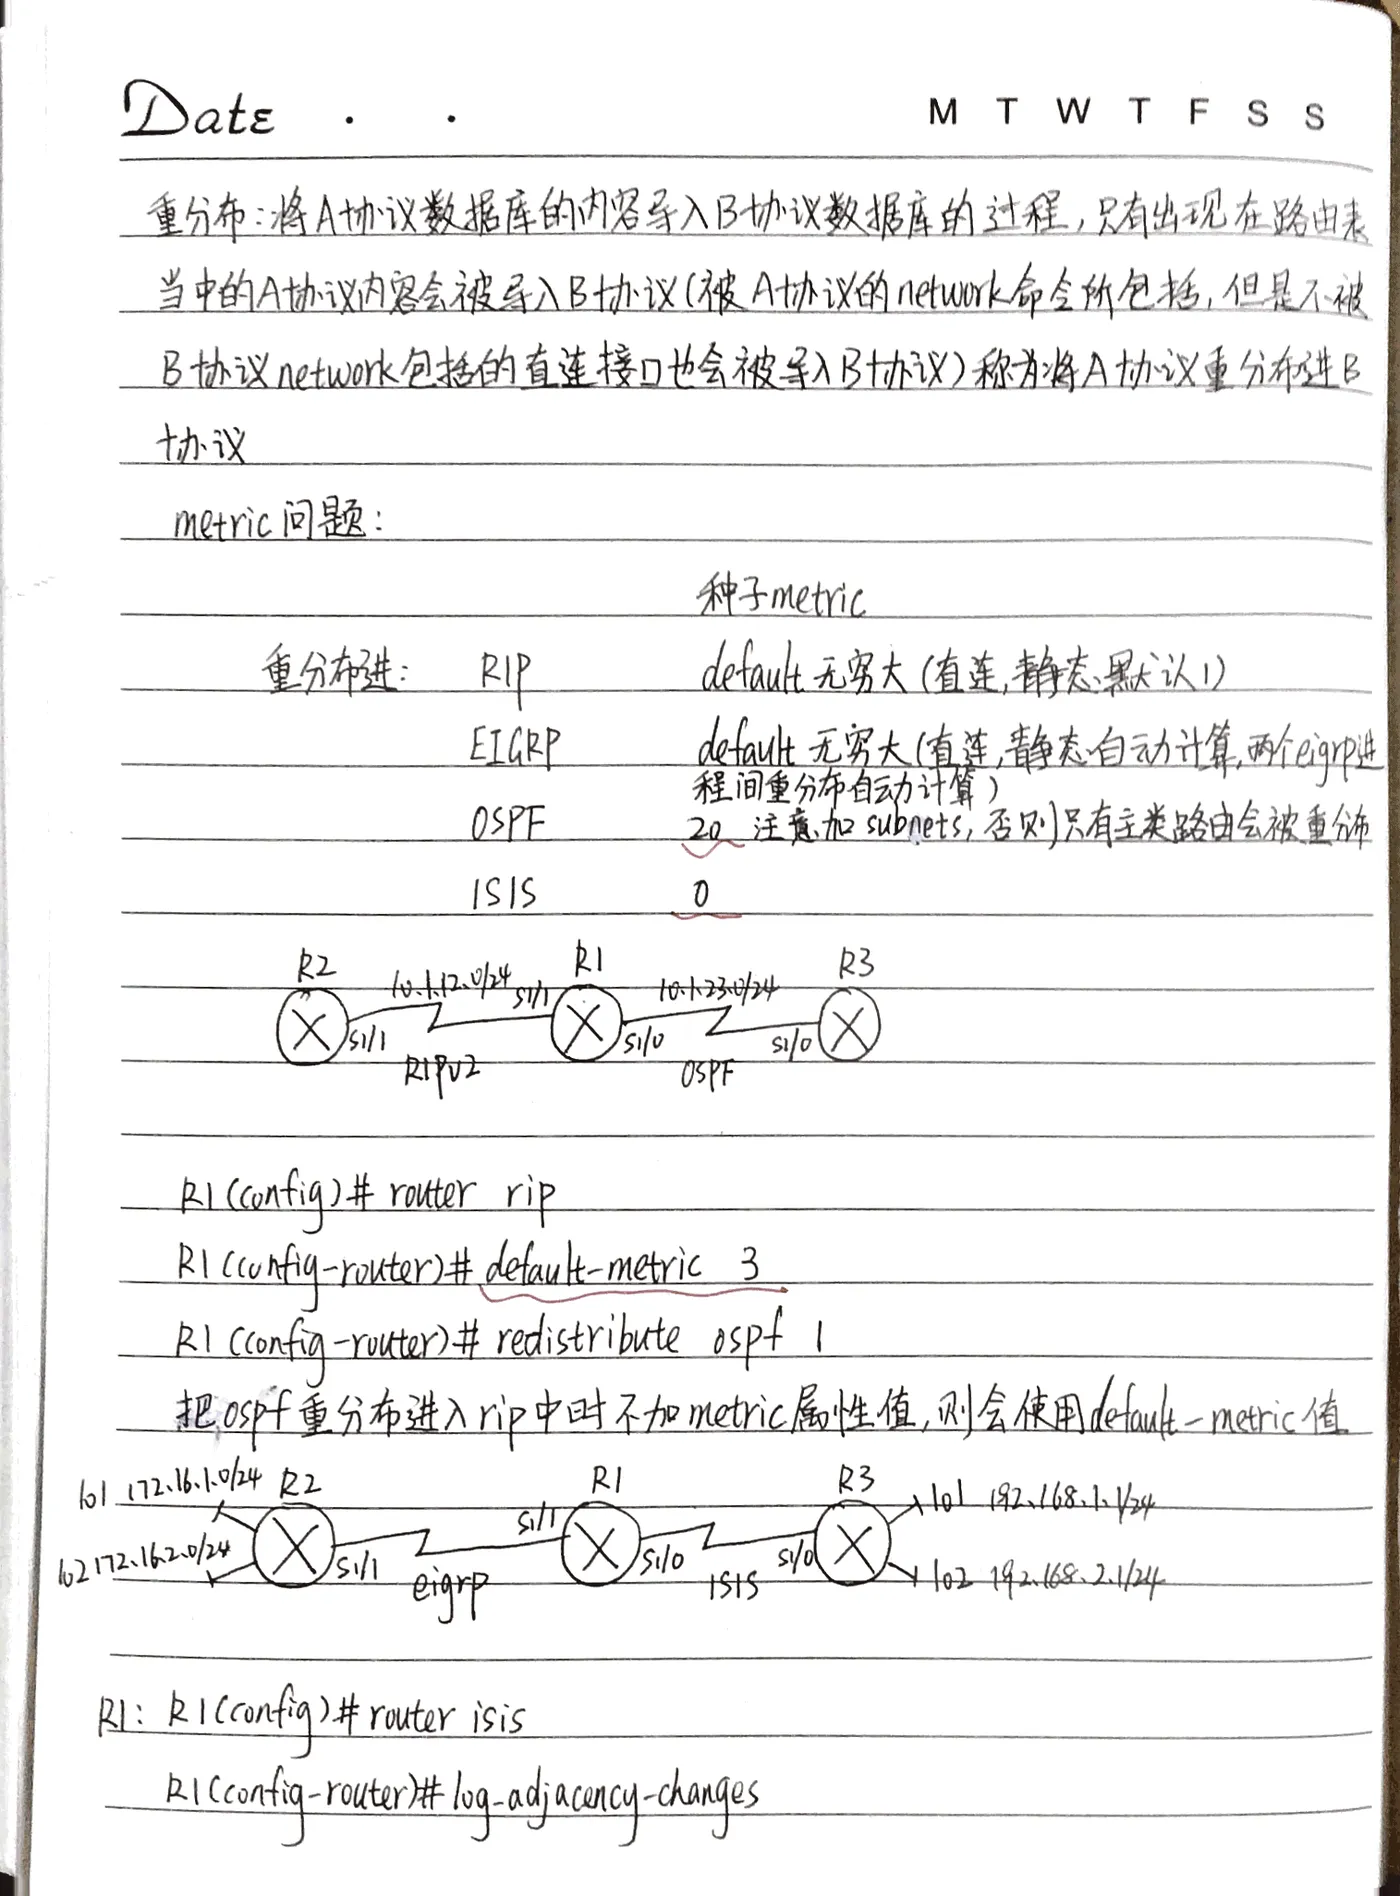 Date . . M T W T F S S
重分布:将A协议数据库的内容导入B协议数据库的过程,只有出现在路由表
当中的A协议内容会被导入B协议(被A协议的network命令所包括,但是不被
B协议network包括的直连接口也会被导入B协议)称为将A协议重分布进B
协议
metric问题:
种子metric
重分布进: RIP default 无穷大(直连,静态默认1)
EIGRP default 无穷大(直连,静态自动计算,两个eigrp进
程间重分布自动计算)
OSPF 20 注意加subnets,否则只有主类路由会被重分布
ISIS 0
R2 10.1.12.0/24 S1/1 R1 10.1.23.0/24 R3
S1/1 RIPv2 S1/0 OSPF S1/0
R1(config)# router rip
R1(config-router)# default-metric 3
R1(config-router)# redistribute ospf 1
把ospf重分布进入rip中时不加metric属性值,则会使用default-metric值
lo1 172.16.1.0/24 R2 S1/1 R1 R3 lo1 192.168.1.1/24
lo2 172.16.2.0/24 S1/1 eigrp S1/0 ISIS S1/0 lo2 192.168.2.1/24
R1: R1(config)# router isis
R1(config-router)# log-adjacency-changes